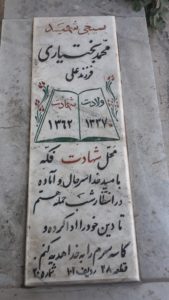 بسیجی شهید
محمد بختیاری
فرزند علی
ولادت شهادت
۱۳۳۷ ۱۳۶۲
محل شهادت فکه
با امید خدا سرحال و آماده
در انتظار شب حمله هستم
تا دین خود را ادا کرده و
کاسه سرم را به خدا هدیه کنم
قطعه ۲۸ ردیف ۱۰۶ شماره ۲۰